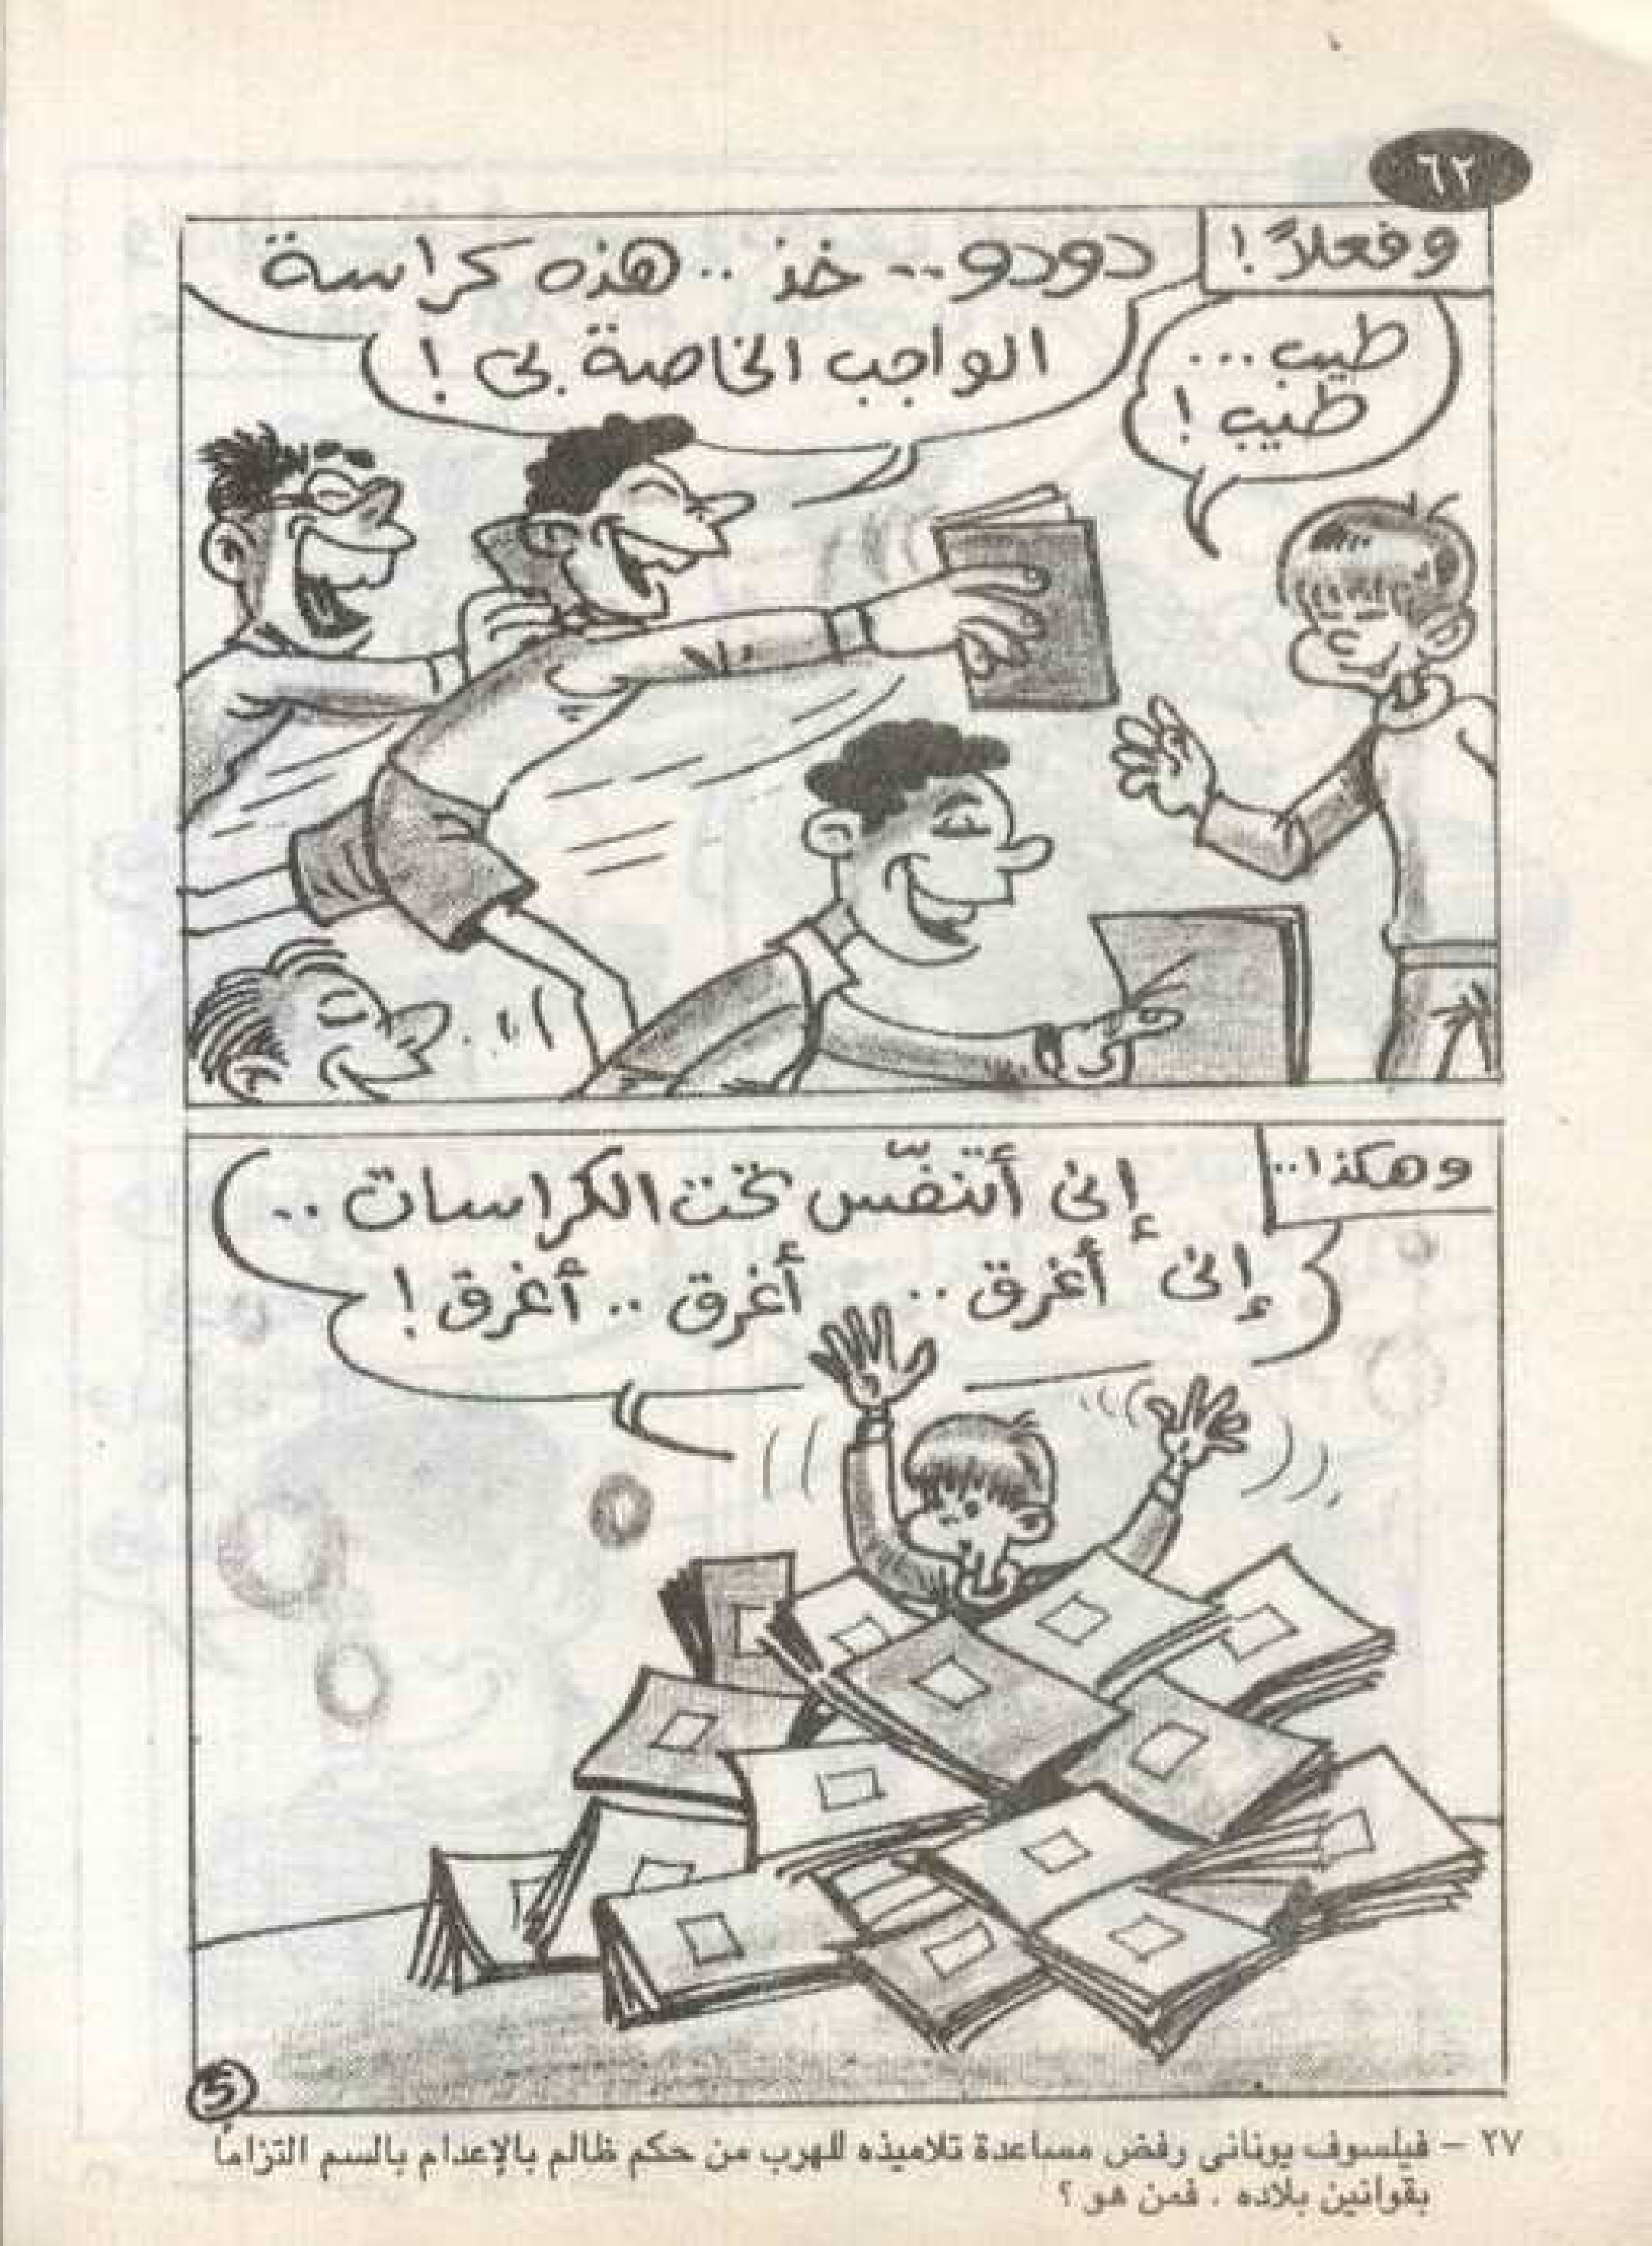 ٦٢
وفعلاً!
طيب...
طيب!
دودو.. خذ.. هذه كراسة
الواجب الخاصة بى!
وهكذا..
إنى أتنفّس تحت الكراسات..
إنى أغرق.. أغرق.. أغرق!
5
٢٧ - فيلسوف يونانى رفض مساعدة تلاميذه للهرب من حكم ظالم بالإعدام بالسم التزاماً
بقوانين بلاده . فمن هو ؟